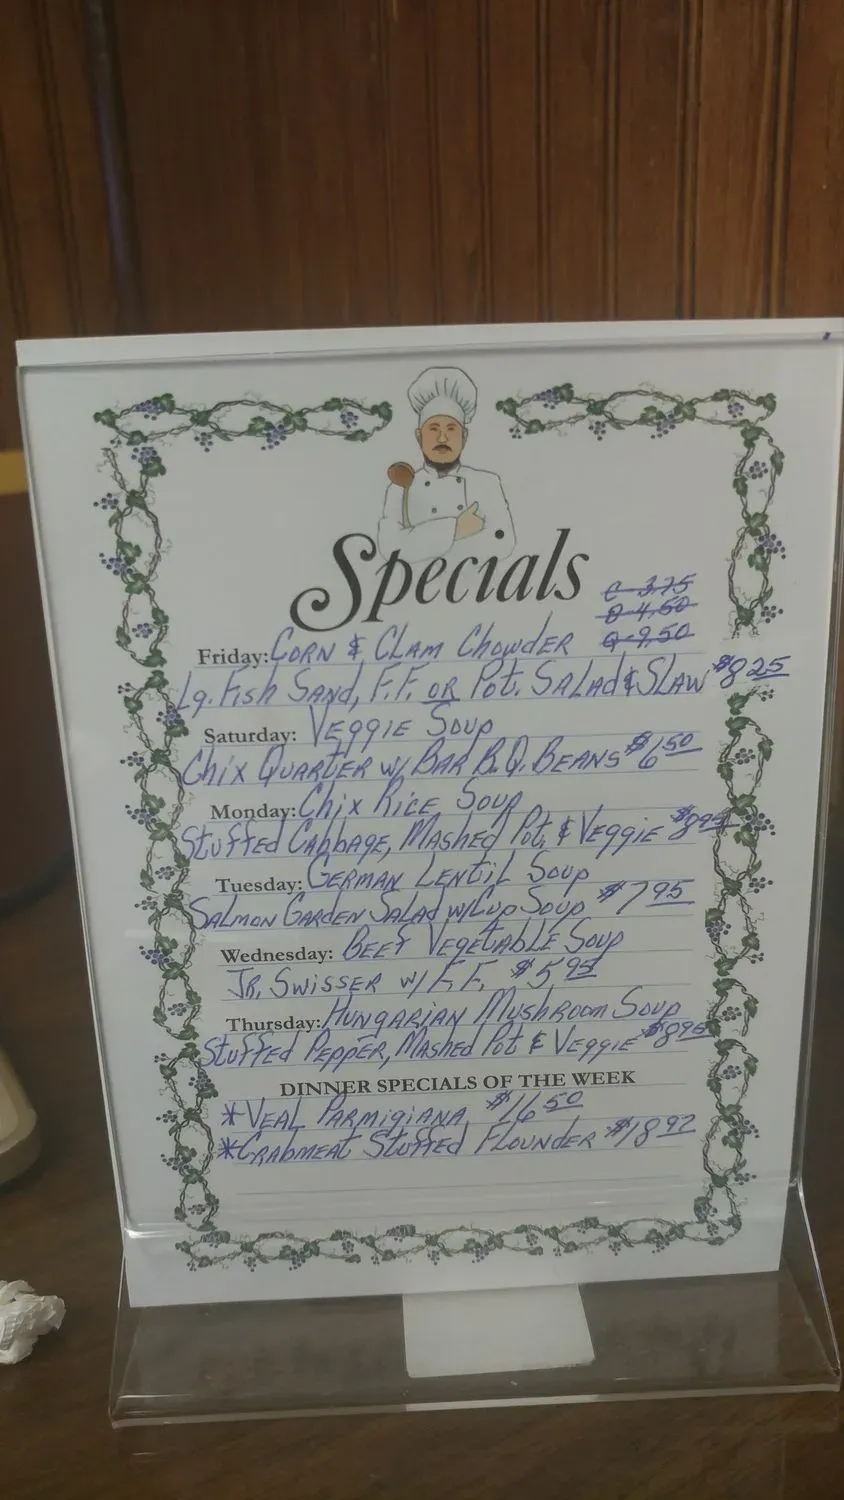 Specials
C 3.75
B 4.60
Q 9.50
Friday: CORN & CLAM CHOWDER
Lg. Fish Sand, F.F. or Pot. Salad & Slaw $8.25
Saturday: Veggie Soup
Chix Quarter w/ Bar B.Q. Beans $6.50
Monday: Chix Rice Soup
Stuffed Cabbage, Mashed Pot. & Veggie $8.95
Tuesday: German Lentil Soup
Salmon Garden Salad w/Cup Soup $7.95
Wednesday: Beef Vegetable Soup
Jr. Swisser w/ F.F. $5.95
Thursday: Hungarian Mushroom Soup
Stuffed Pepper, Mashed Pot & Veggie $8.95
DINNER SPECIALS OF THE WEEK
*Veal Parmigiana $16.50
*Crabmeat Stuffed Flounder